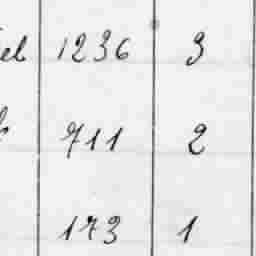 el 1236 3
711 2
173 1